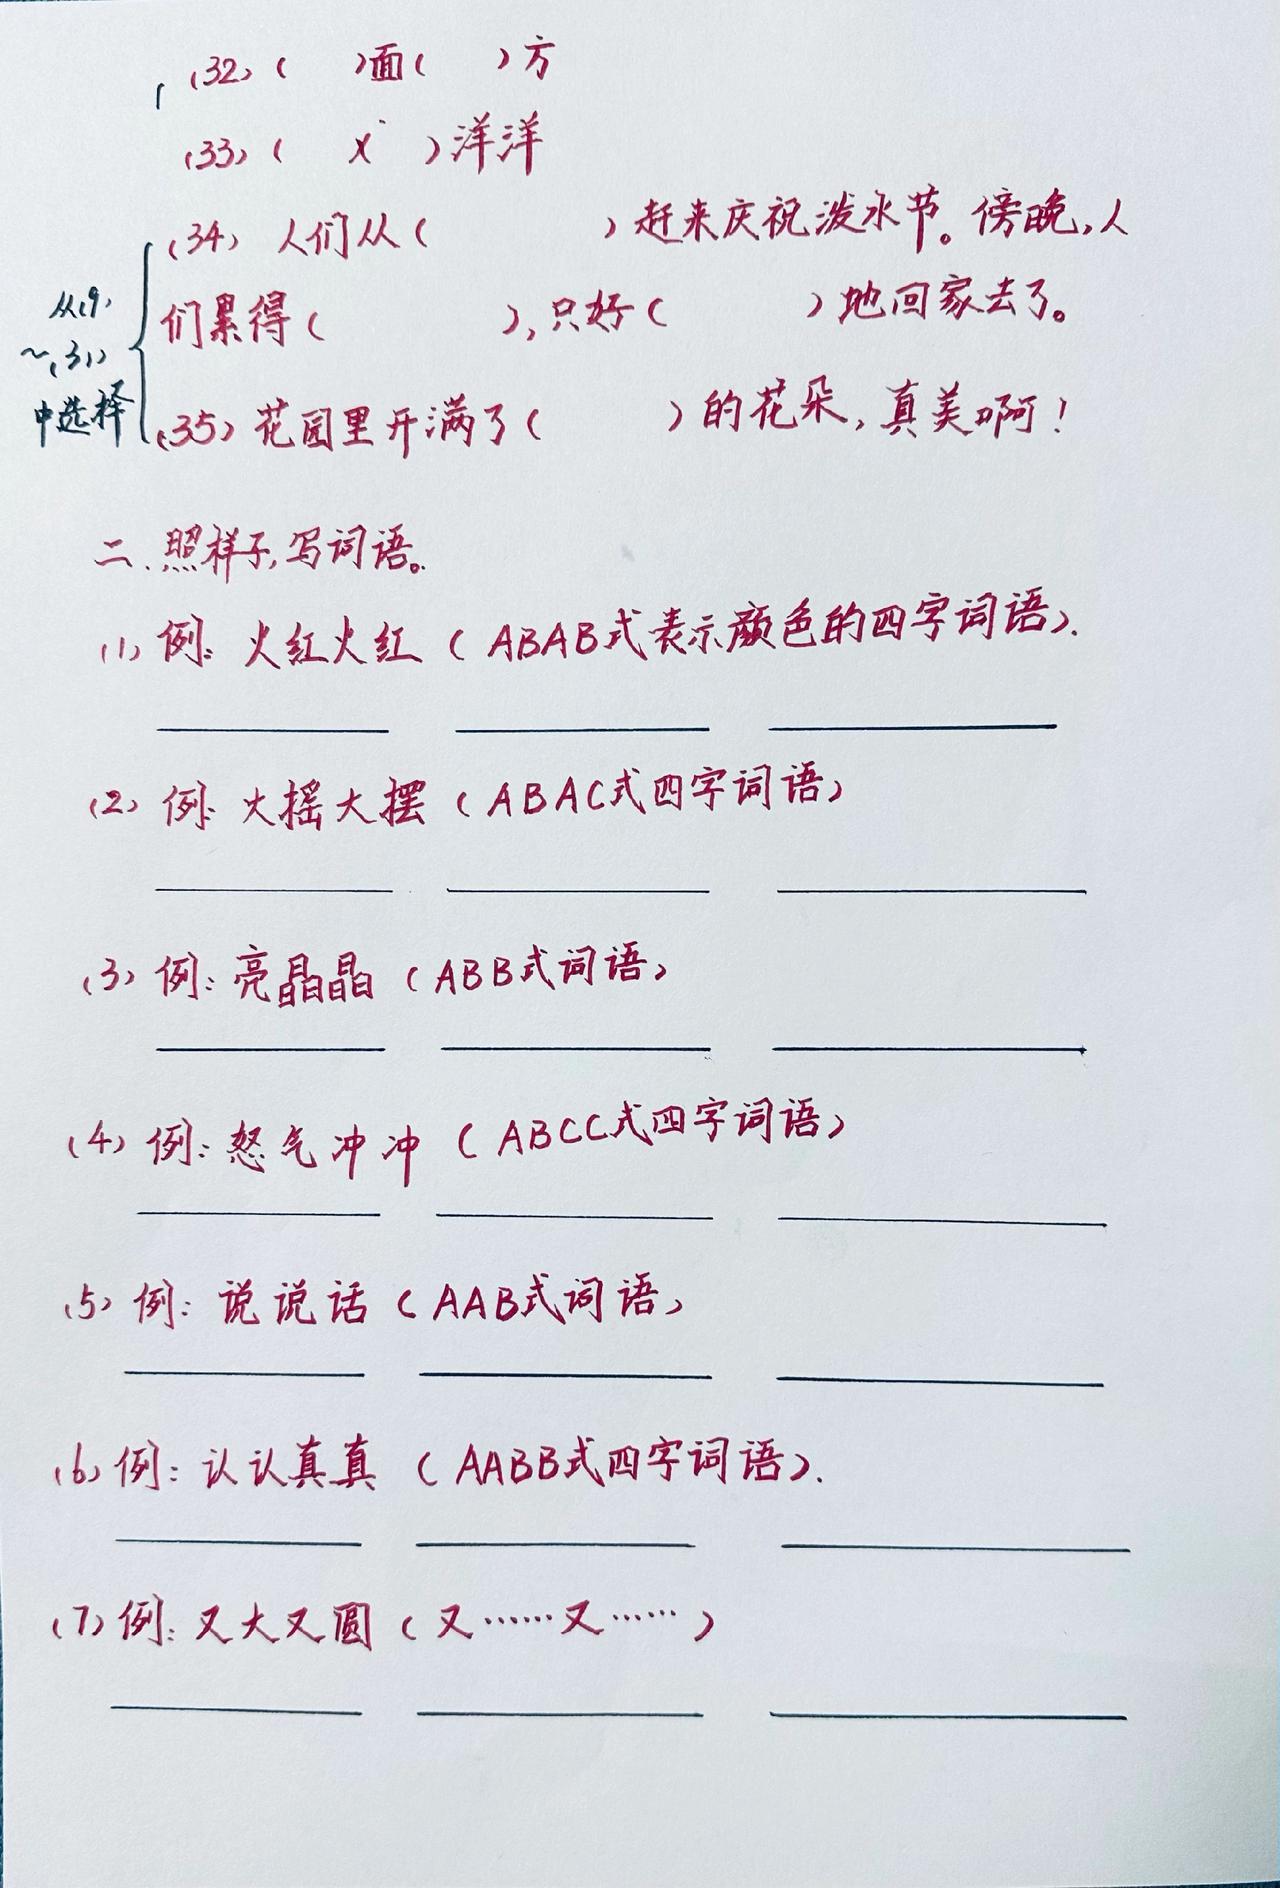 (32) (    )面(    )方
(33) (    )洋洋
(34) 人们从(    )赶来庆祝泼水节。傍晚,人
们累得(    ),只好(    )地回家去了。
(35) 花园里开满了(    )的花朵,真美啊!
从(9)
~(31)
中选择
二、照样子,写词语。
(1) 例: 火红火红 (ABAB式表示颜色的四字词语).
(2) 例: 大摇大摆 (ABAC式四字词语)
(3) 例: 亮晶晶 (ABB式词语)
(4) 例: 怒气冲冲 (ABCC式四字词语)
(5) 例: 说说话 (AAB式词语)
(6) 例: 认认真真 (AABB式四字词语).
(7) 例: 又大又圆 (又……又……)